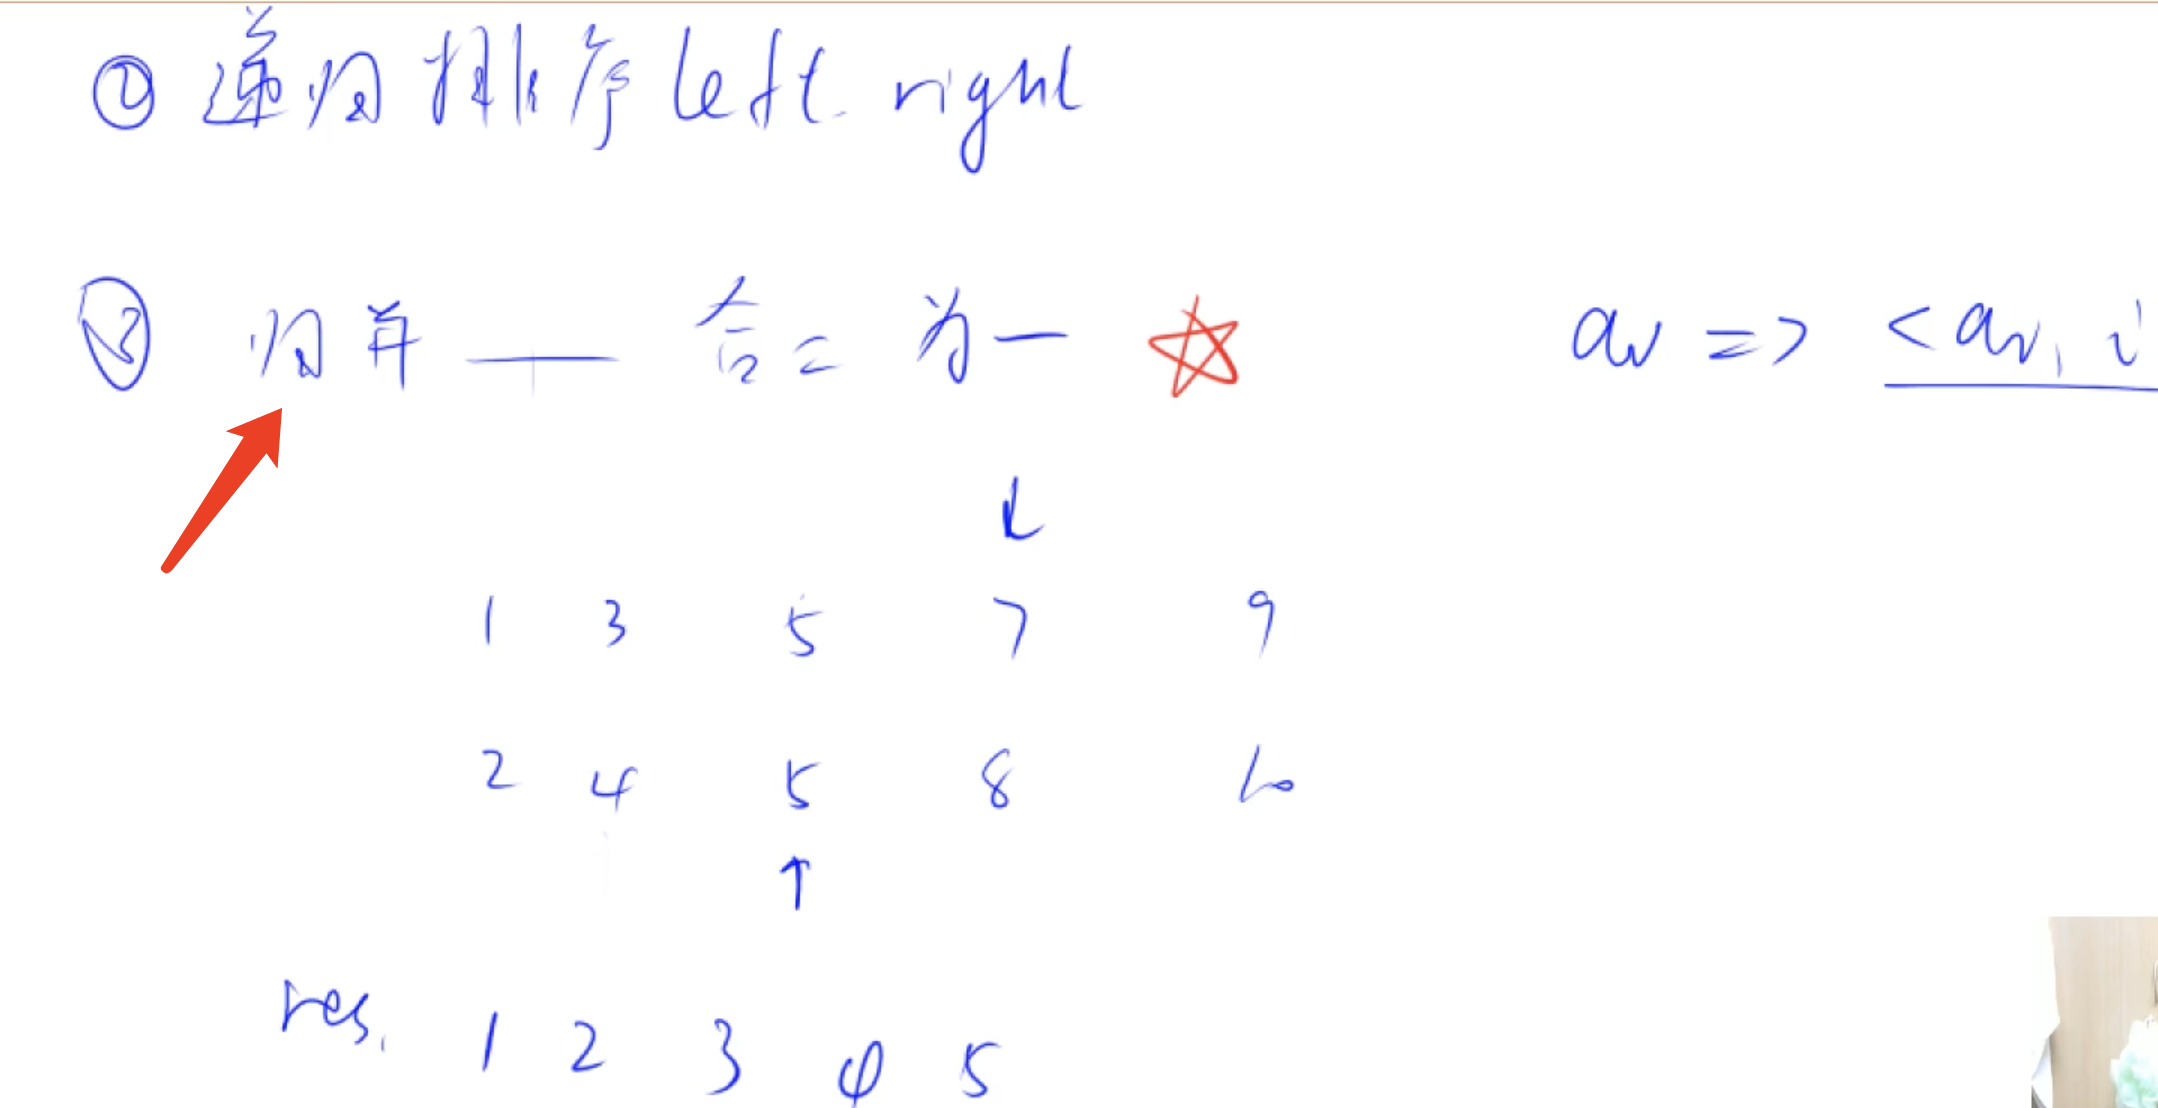 ② 递归排序 left right
③ 归并 —— 合二为一 ☆
ai => <ai, i
1 3 5 7 9
2 4 5 8 10
res. 1 2 3 4 5